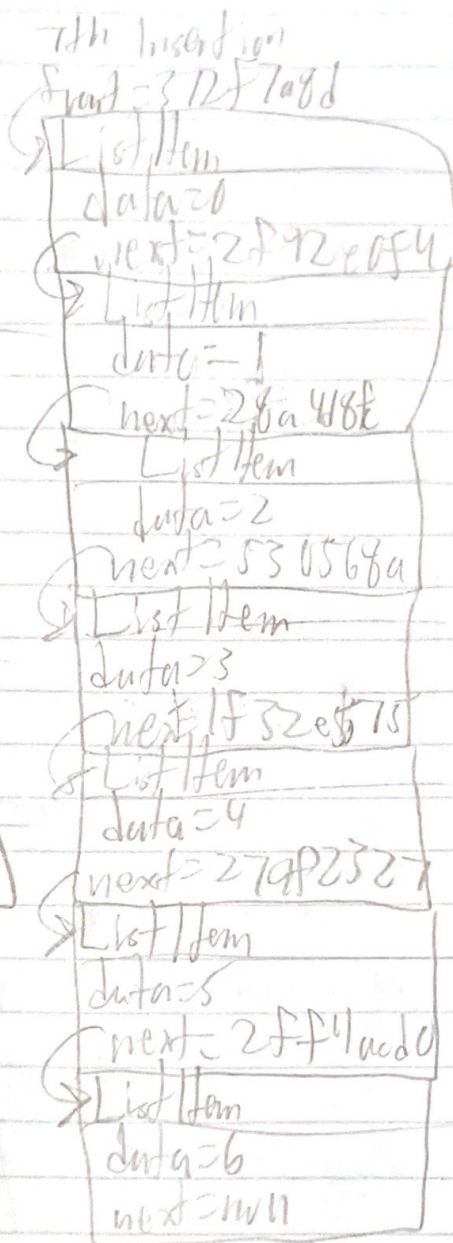 7th Insertion
front=372f7a8d
List Item
data=0
next=2f92e0f4
List Item
data=-1
next=
List Item
data=2
next=530568a
List Item
data=3
next=
List Item
data=4
next=27af2327
List Item
data=5
next=2ff4acd0
List Item
data=6
next=null